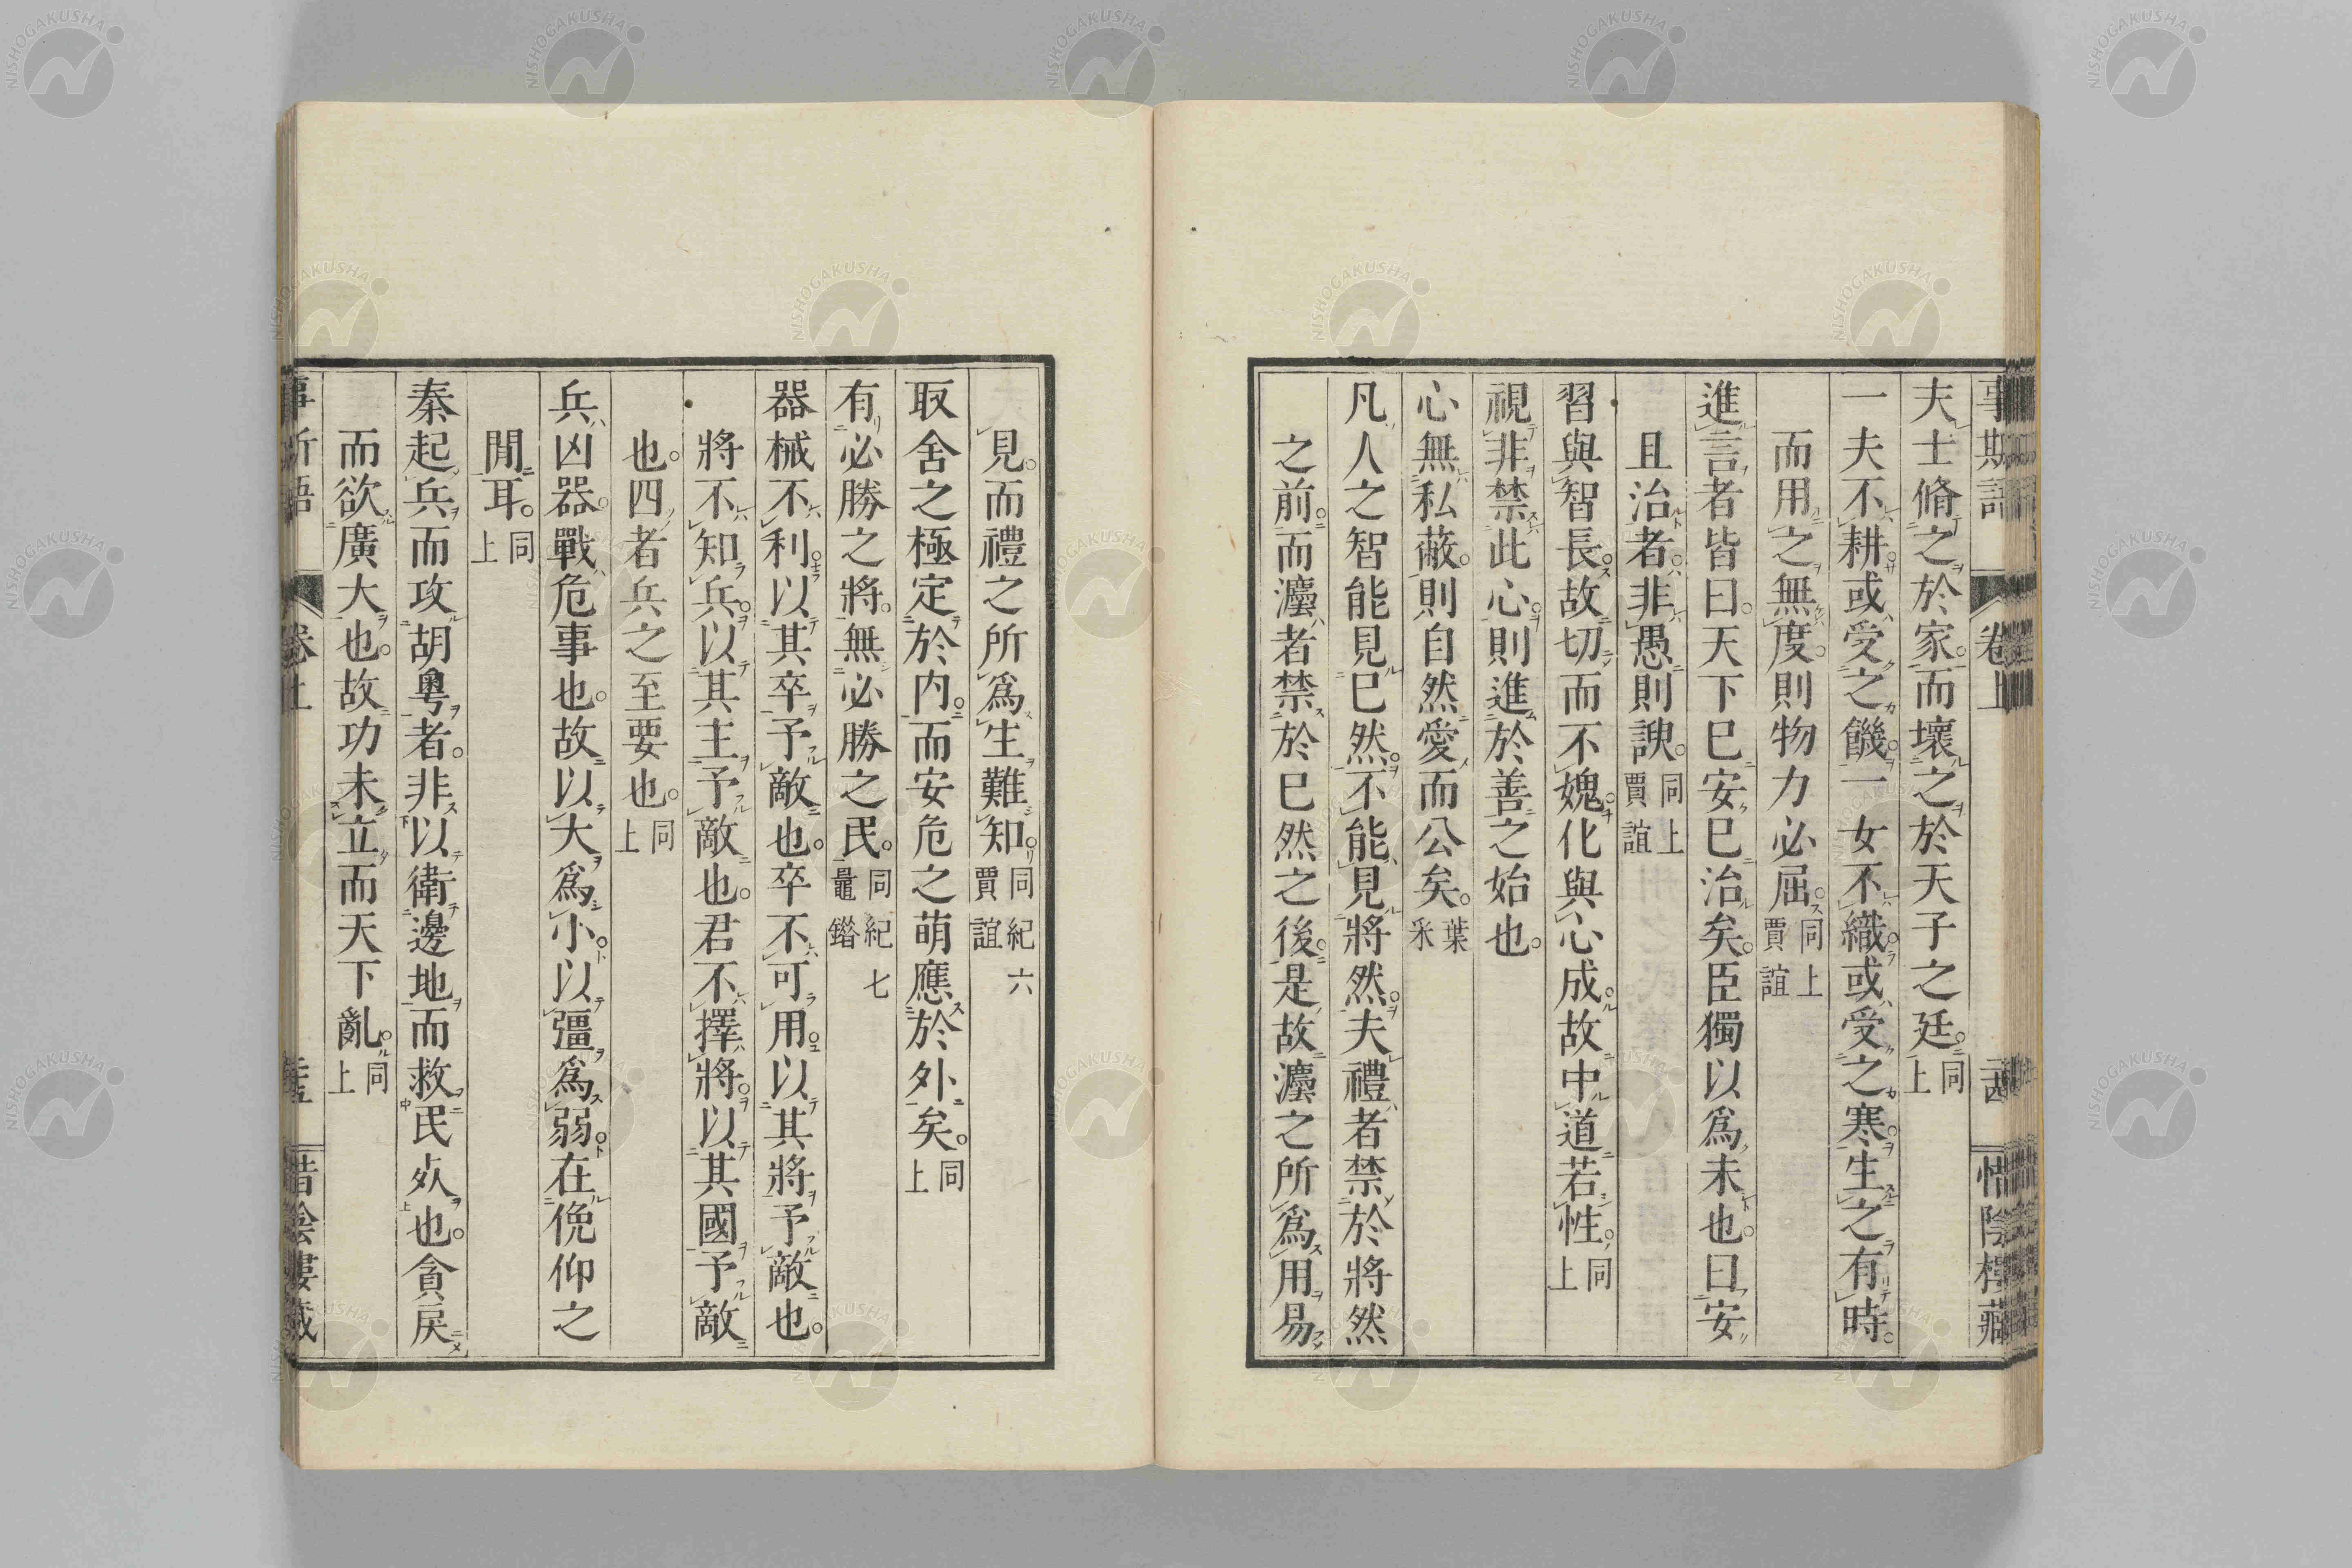 事斯語 卷上 惜陰樓藏
夫士脩之於家。而壞之於天子之廷。同上
一夫不耕。或受之饑。一女不織。或受之寒。生之有時。
而用之無度。則物力必屈。同上賈誼
進言者皆曰。天下已安已治矣。臣獨以爲未也。曰安
且治者。非愚則諛。同上賈誼
習與智長。故切而不媿。化與心成。故中道若性。同上
視非禁此心。則進於善之始也。
心無私蔽。則自然愛而公矣。葉采
凡人之智能見已然。不能見將然。夫禮者禁於將然
之前。而灋者禁於已然之後。是故灋之所爲用易
見。而禮之所爲生難知。同紀六賈誼
取舍之極定於内。而安危之萌應於外矣。同上
有必勝之將。無必勝之民。同紀七鼂錯
器械不利。以其卒予敵也。卒不可用。以其將予敵也。
將不知兵。以其主予敵也。君不擇將。以其國予敵
也。四者兵之至要也。同上
兵凶器。戰危事也。故以大爲小。以彊爲弱。在俛仰之
閒耳。同上
秦起兵而攻胡粵者。非以衛邊地而救民死也。貪戾
而欲廣大也。故功未立而天下亂。同上
事斯語 卷上 惜陰樓藏